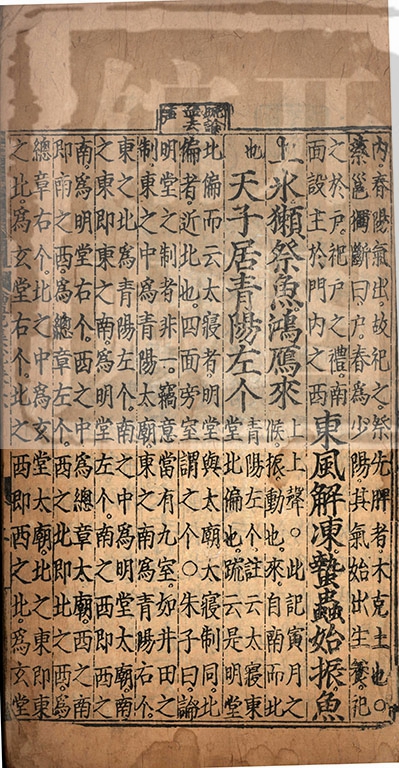 脫論
並去
聲
內春陽氣出故祀之祭先脾者木克土也○
蔡邕獨斷曰戶春爲少陽其氣始出生養祀
之於戶祀戶之禮南
面設主於門內之西
東風解凍蟄蟲始振魚
上氷獺祭魚鴻鴈來
上上聲○此記寅月之
候振動也來自南而北
也
天子居青陽左个
青陽左个註云太寢東
堂北偏也疏云是明堂
北偏而云太寢者明堂與太廟太寢制同北
偏者近北也四面旁室謂之个○朱子曰論
明堂之制者非一竊意當有九室如井田之
制東之中爲青陽太廟東之南爲青陽右个
東之北爲青陽左个南之中爲明堂太廟南
之東即東之南爲明堂左个南之西即西之
南爲明堂右个西之中爲總章太廟西之南
即南之西爲總章左个西之北即北之西爲
總章右个北之中爲玄堂太廟北之東即東
之北爲玄堂右个北之西即西之北爲玄堂